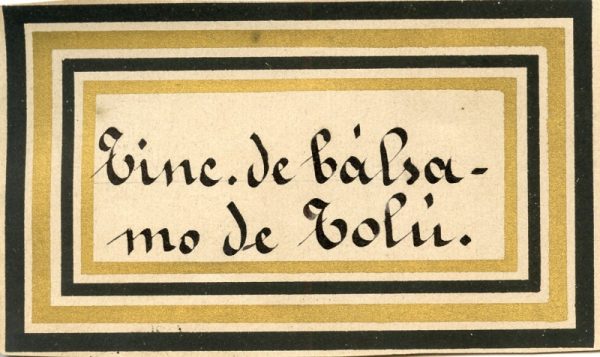 Tinc. de bálsa-
mo de Tolú.